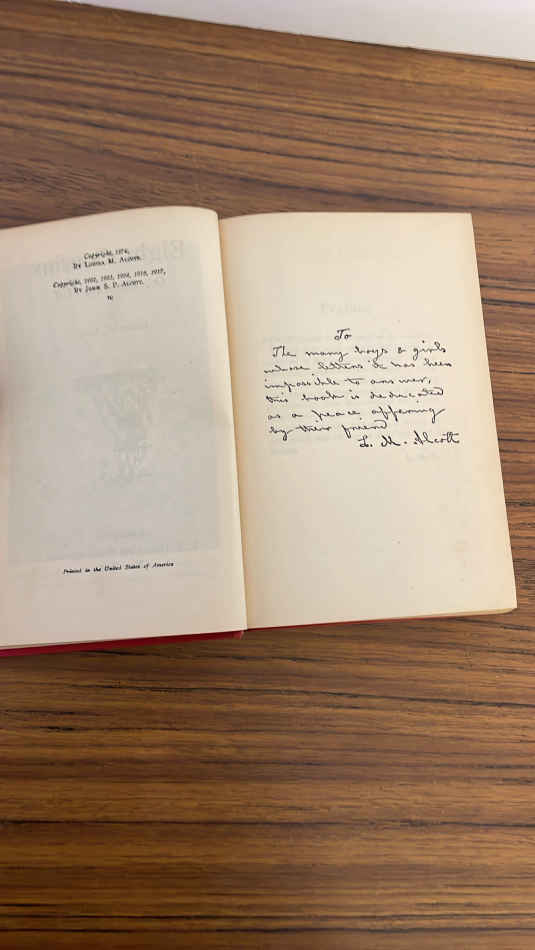 Copyright, 1874,
By Louisa M. Alcott.
By John S. P. Alcott.
Printed in the United States of America
To
The many boys & girls
whose letters it has been
impossible to answer,
this book is dedicated
as a peace offering
by their friend
L. M. Alcott